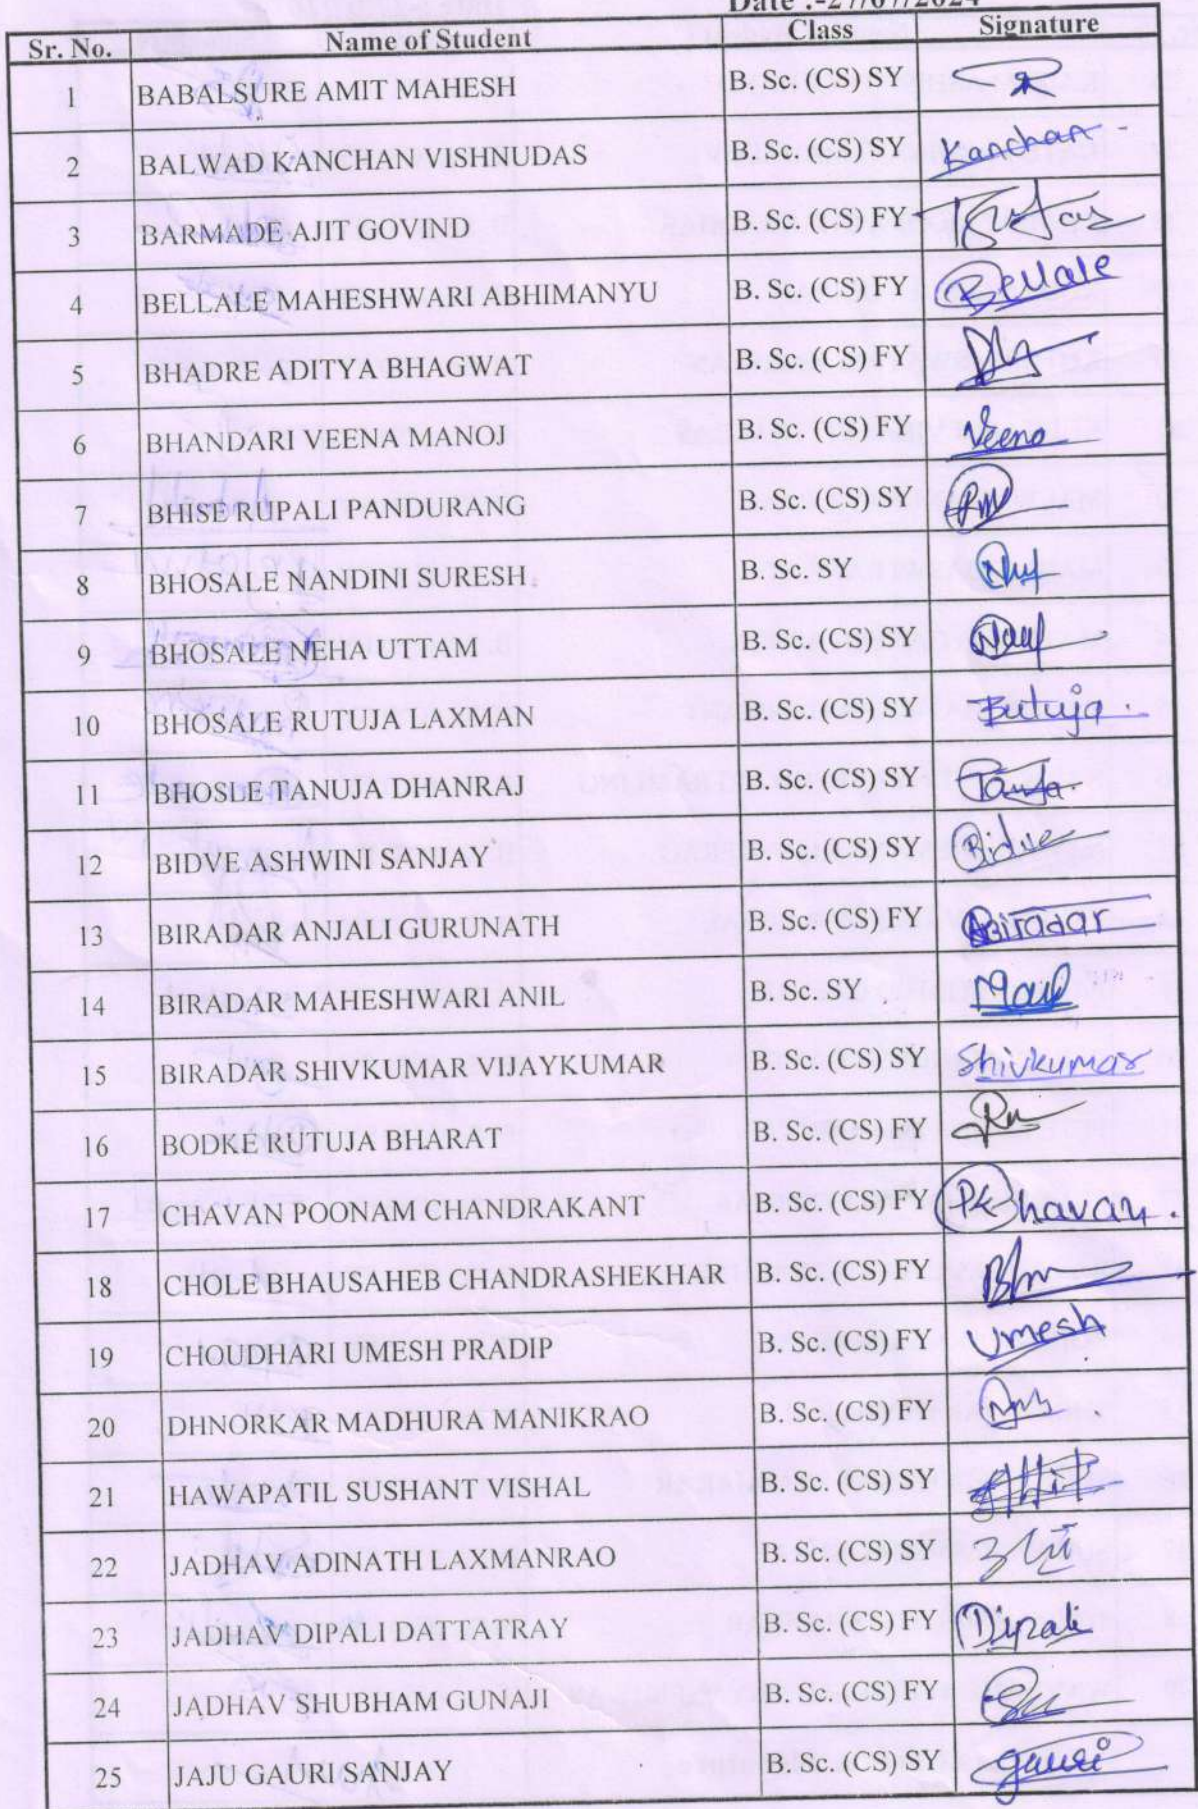 Date :-27/07/2024
Sr. No. Name of Student Class Signature
1 BABALSURE AMIT MAHESH B. Sc. (CS) SY
2 BALWAD KANCHAN VISHNUDAS B. Sc. (CS) SY Kanchan
3 BARMADE AJIT GOVIND B. Sc. (CS) FY
4 BELLALE MAHESHWARI ABHIMANYU B. Sc. (CS) FY Bellale
5 BHADRE ADITYA BHAGWAT B. Sc. (CS) FY
6 BHANDARI VEENA MANOJ B. Sc. (CS) FY Veena
7 BHISE RUPALI PANDURANG B. Sc. (CS) SY
8 BHOSALE NANDINI SURESH B. Sc. SY
9 BHOSALE NEHA UTTAM B. Sc. (CS) SY
10 BHOSALE RUTUJA LAXMAN B. Sc. (CS) SY Rutuja.
11 BHOSLE TANUJA DHANRAJ B. Sc. (CS) SY
12 BIDVE ASHWINI SANJAY B. Sc. (CS) SY Bidve
13 BIRADAR ANJALI GURUNATH B. Sc. (CS) FY Biradar
14 BIRADAR MAHESHWARI ANIL B. Sc. SY
15 BIRADAR SHIVKUMAR VIJAYKUMAR B. Sc. (CS) SY Shivkumar
16 BODKE RUTUJA BHARAT B. Sc. (CS) FY
17 CHAVAN POONAM CHANDRAKANT B. Sc. (CS) FY PChavan.
18 CHOLE BHAUSAHEB CHANDRASHEKHAR B. Sc. (CS) FY
19 CHOUDHARI UMESH PRADIP B. Sc. (CS) FY Umesh
20 DHNORKAR MADHURA MANIKRAO B. Sc. (CS) FY
21 HAWAPATIL SUSHANT VISHAL B. Sc. (CS) SY
22 JADHAV ADINATH LAXMANRAO B. Sc. (CS) SY
23 JADHAV DIPALI DATTATRAY B. Sc. (CS) FY Dipali
24 JADHAV SHUBHAM GUNAJI B. Sc. (CS) FY
25 JAJU GAURI SANJAY B. Sc. (CS) SY gauri